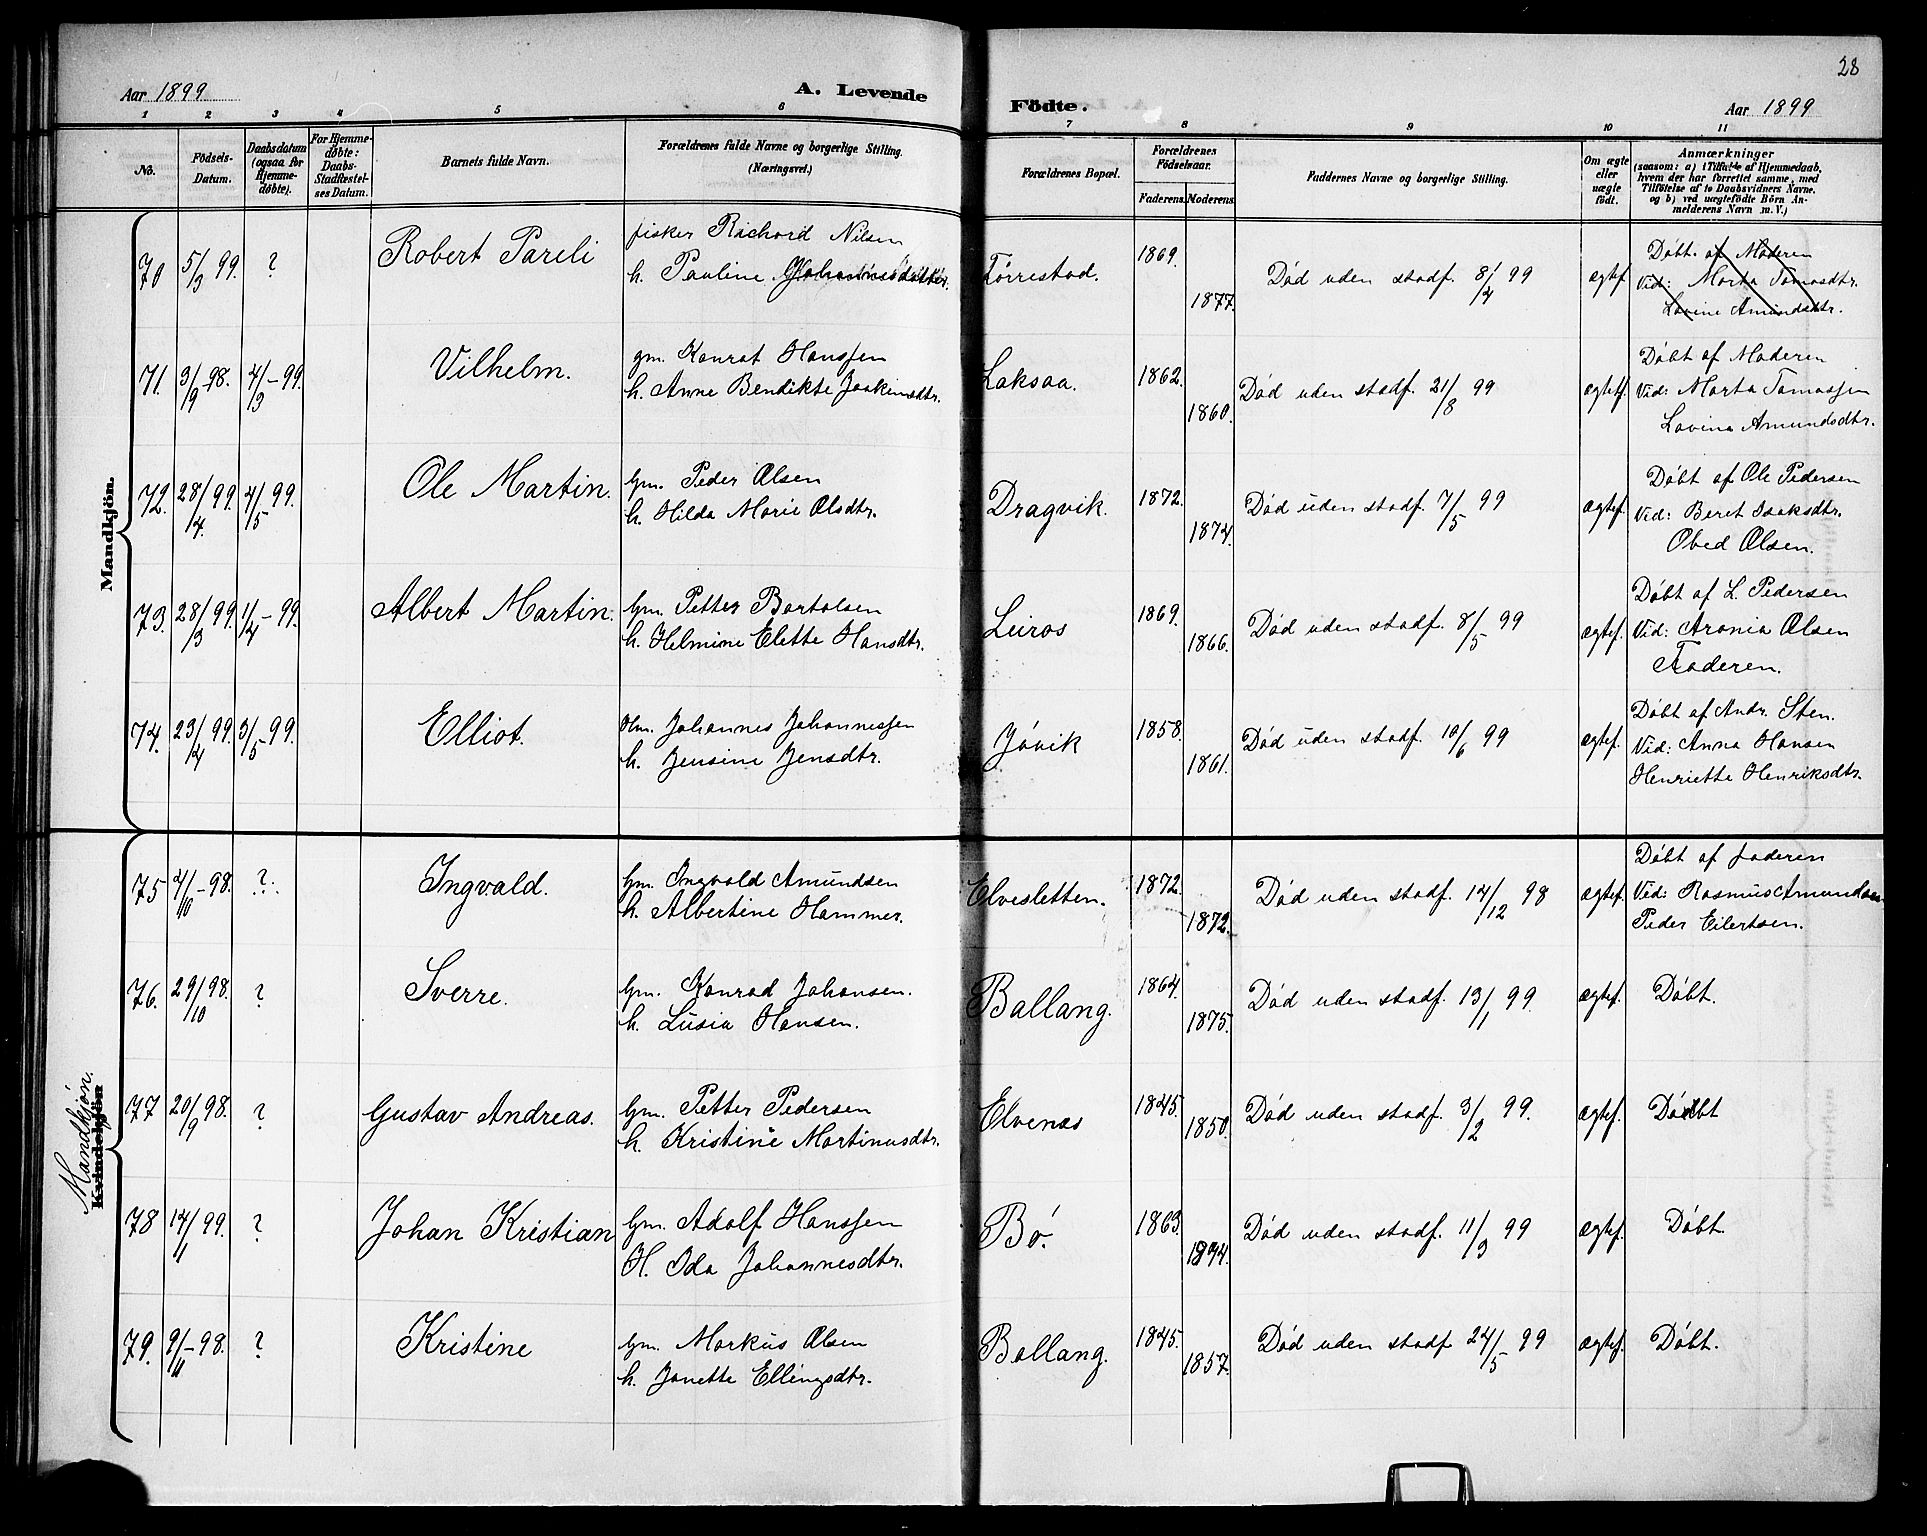 28
Aar 1899
A. Levende
Födte.
Aar 1899
1 2 3 4 5 6 7 8 9 10 11
No.
Födsels-
Datum.
Daabsdatum
(ogsaa for
Hjemme-
döbte).
For Hjemme-
döbte:
Daabs-
Stadfæstel-
ses Datum.
Barnets fulde Navn.
Forældrenes fulde Navne og borgerlige Stilling.
(Næringsvei.)
Forældrenes Bopæl.
Forældrenes
Födselsaar.
Faderens. Moderens.
Faddernes Navne og borgerlige Stilling.
Om ægte
eller
uægte
födt.
Anmærkninger
(saasom: a) i Tilfælde af Hjemmedaab,
hvem der har forrettet samme, med
Tilföielse af to Daabsvidners Navne,
og b) ved uægtefödte Börn An-
melderens Navn m. V.)
Mandkjön.
70 5/3 99. ? Robert Pareli
fisker Richord Nilsen
h. Pauline Johannesdatter.
Tørrestad. 1869. 1877.
Död uden stadf. 8/4 99
ægtef.
Døbt. af Moderen
Vid: Marta Tomasdtr.
Lovine Amundsdtr.
71. 3/9-98. 4/3-99. Vilhelm.
gm. Konrat Hanssen
h. Anne Bendikte Joakimsdtr.
Laksaa. 1862. 1860.
Død uden stadf. 21/8 99
ægtef.
Døbt af Moderen
Vid: Marta Tomassen
Lovina Amundsdtr.
72. 28/4 99. 4/5 99. Ole Martin.
Gm. Peder Olsen
h. Hilda Marie Olsdtr.
Dragvik. 1872. 1874.
Død uden stadf. 7/5 99
ægtef.
Døbt af Ole Pedersen
Vid: Beret Isaksdtr.
Obed Olsen.
73. 28/3 99. 1/4-99. Albert Martin.
Gm. Petter Bartolsen
h. Helmine Elette Hansdtr.
Leiros 1869. 1866.
Død uden stadf. 8/5 99
ægtef.
Døbt af L. Pedersen
Vid: Aronia Olsen
Faderen.
74. 23/4 99. 3/5 99. Elliot.
Gm. Johannes Johannessen
h. Jensine Jensdtr.
Jövik 1858. 1861.
Død uden stadf. 10/6 99
ægtef.
Døbt af Andr. Sten.
Vid: Anna Hansen
Henriette Henriksdtr.
Mandkjön.
Kvindekjön
75 4/10-98. ? Ingvald.
Gm. Ingvald Amundsen
h. Albertine Hammer.
Elvesletten. 1872. 1872.
Død uden stadf. 14/12 98
ægtef.
Døbt af faderen
Vid: Rasmus Amundsen
Peder Eilertsen.
76. 29/10 98. ? Sverre.
Gm. Konrad Johansen.
h. Lusia Hansen.
Ballang. 1864. 1875.
Død uden stadf. 13/1 99.
ægtef. Døbt.
77 20/9 98. ? Gustav Andreas.
Gm. Petter Pedersen
h. Kristine Martinusdtr.
Elvenes 1845. 1850.
Død uden stadf. 3/2 99.
ægtef. Døbt
78 14/1 99. ? Johan Kristian
Gm. Adolf Hanssen
H. Oda Johannesdtr.
Bø. 1863. 1874.
Død uden stadf. 11/3 99
ægtef. Døbt.
79. 9/11-98. ? Kristine
Gm. Markus Olsen
h. Janette Ellingsdtr.
Ballang. 1845. 1857.
Død uden stadf 24/5 99
ægtef. Døbt.